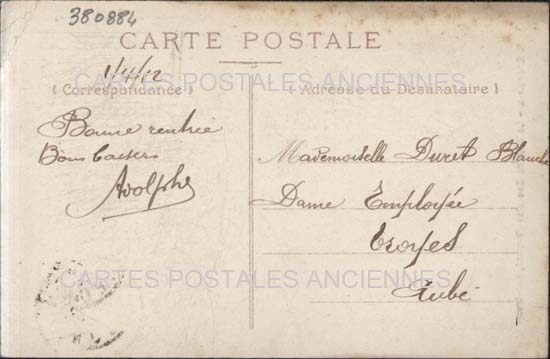 380884
CARTE POSTALE
1/4/12
CARTES POSTALES ANCIENNES
( Correspondance )
( Adresse du Destinataire )
Bonne rentrée
Bons baisers
Adolphe
Mademoiselle Duret Blanche
Dame Employée
Troyes
Aube
CARTES POSTALES ANCIENNES